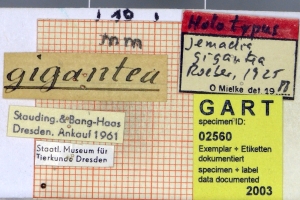 10
mm
gigantea
Stauding. & Bang-Haas
Dresden. Ankauf 1961
Staatl. Museum für
Tierkunde Dresden
Holotypus
Jemadia
gigantea
Röber, 1925
O Mielke det. 19
GART
specimen ID:
02560
Exemplar + Etiketten
dokumentiert
specimen + label
data documented
2003